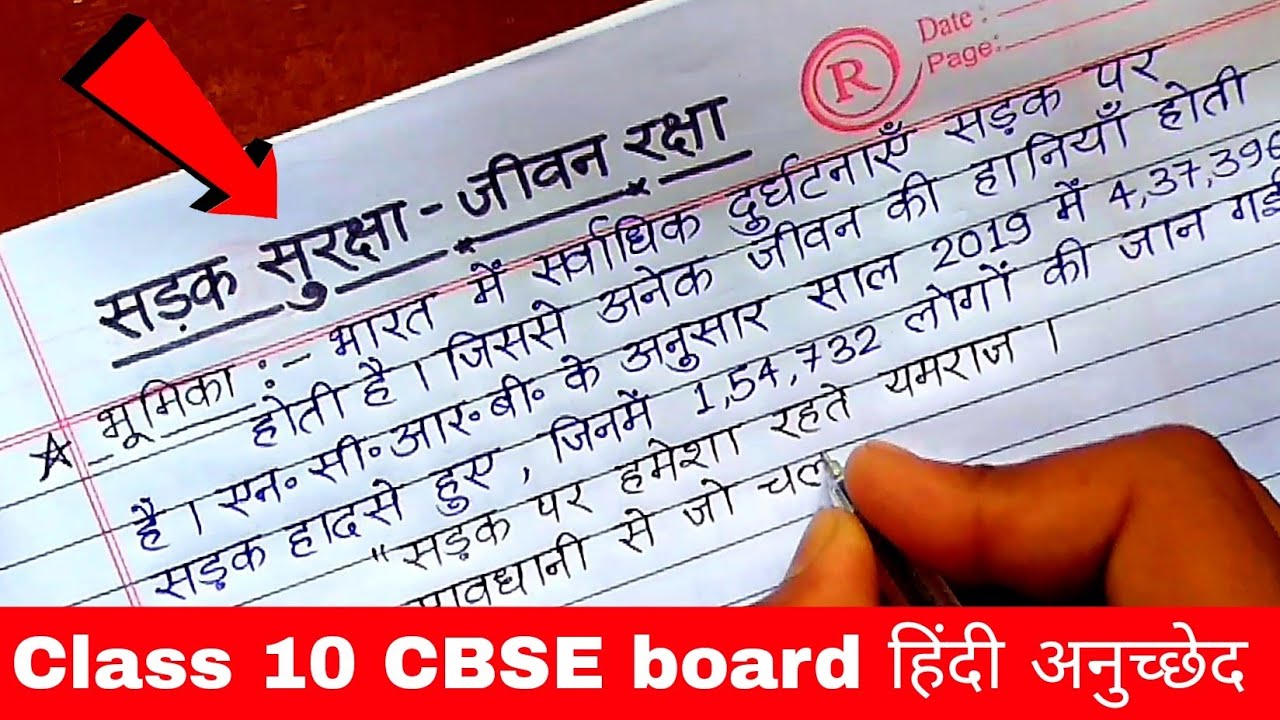 R
Date :
Page:
सड़क सुरक्षा - जीवन रक्षा
भूमिका :- भारत में सर्वाधिक दुर्घटनाएँ सड़क पर
होती है । जिससे अनेक जीवन की हानियाँ होती
है । एन॰ सी॰ आर॰ बी॰ के अनुसार साल 2019 में 4,37,396
सड़क हादसे हुए , जिनमें 1,54,732 लोगों की जान गई
"सड़क पर हमेशा रहते यमराज ।
से जो चल
Class 10 CBSE board हिंदी अनुच्छेद